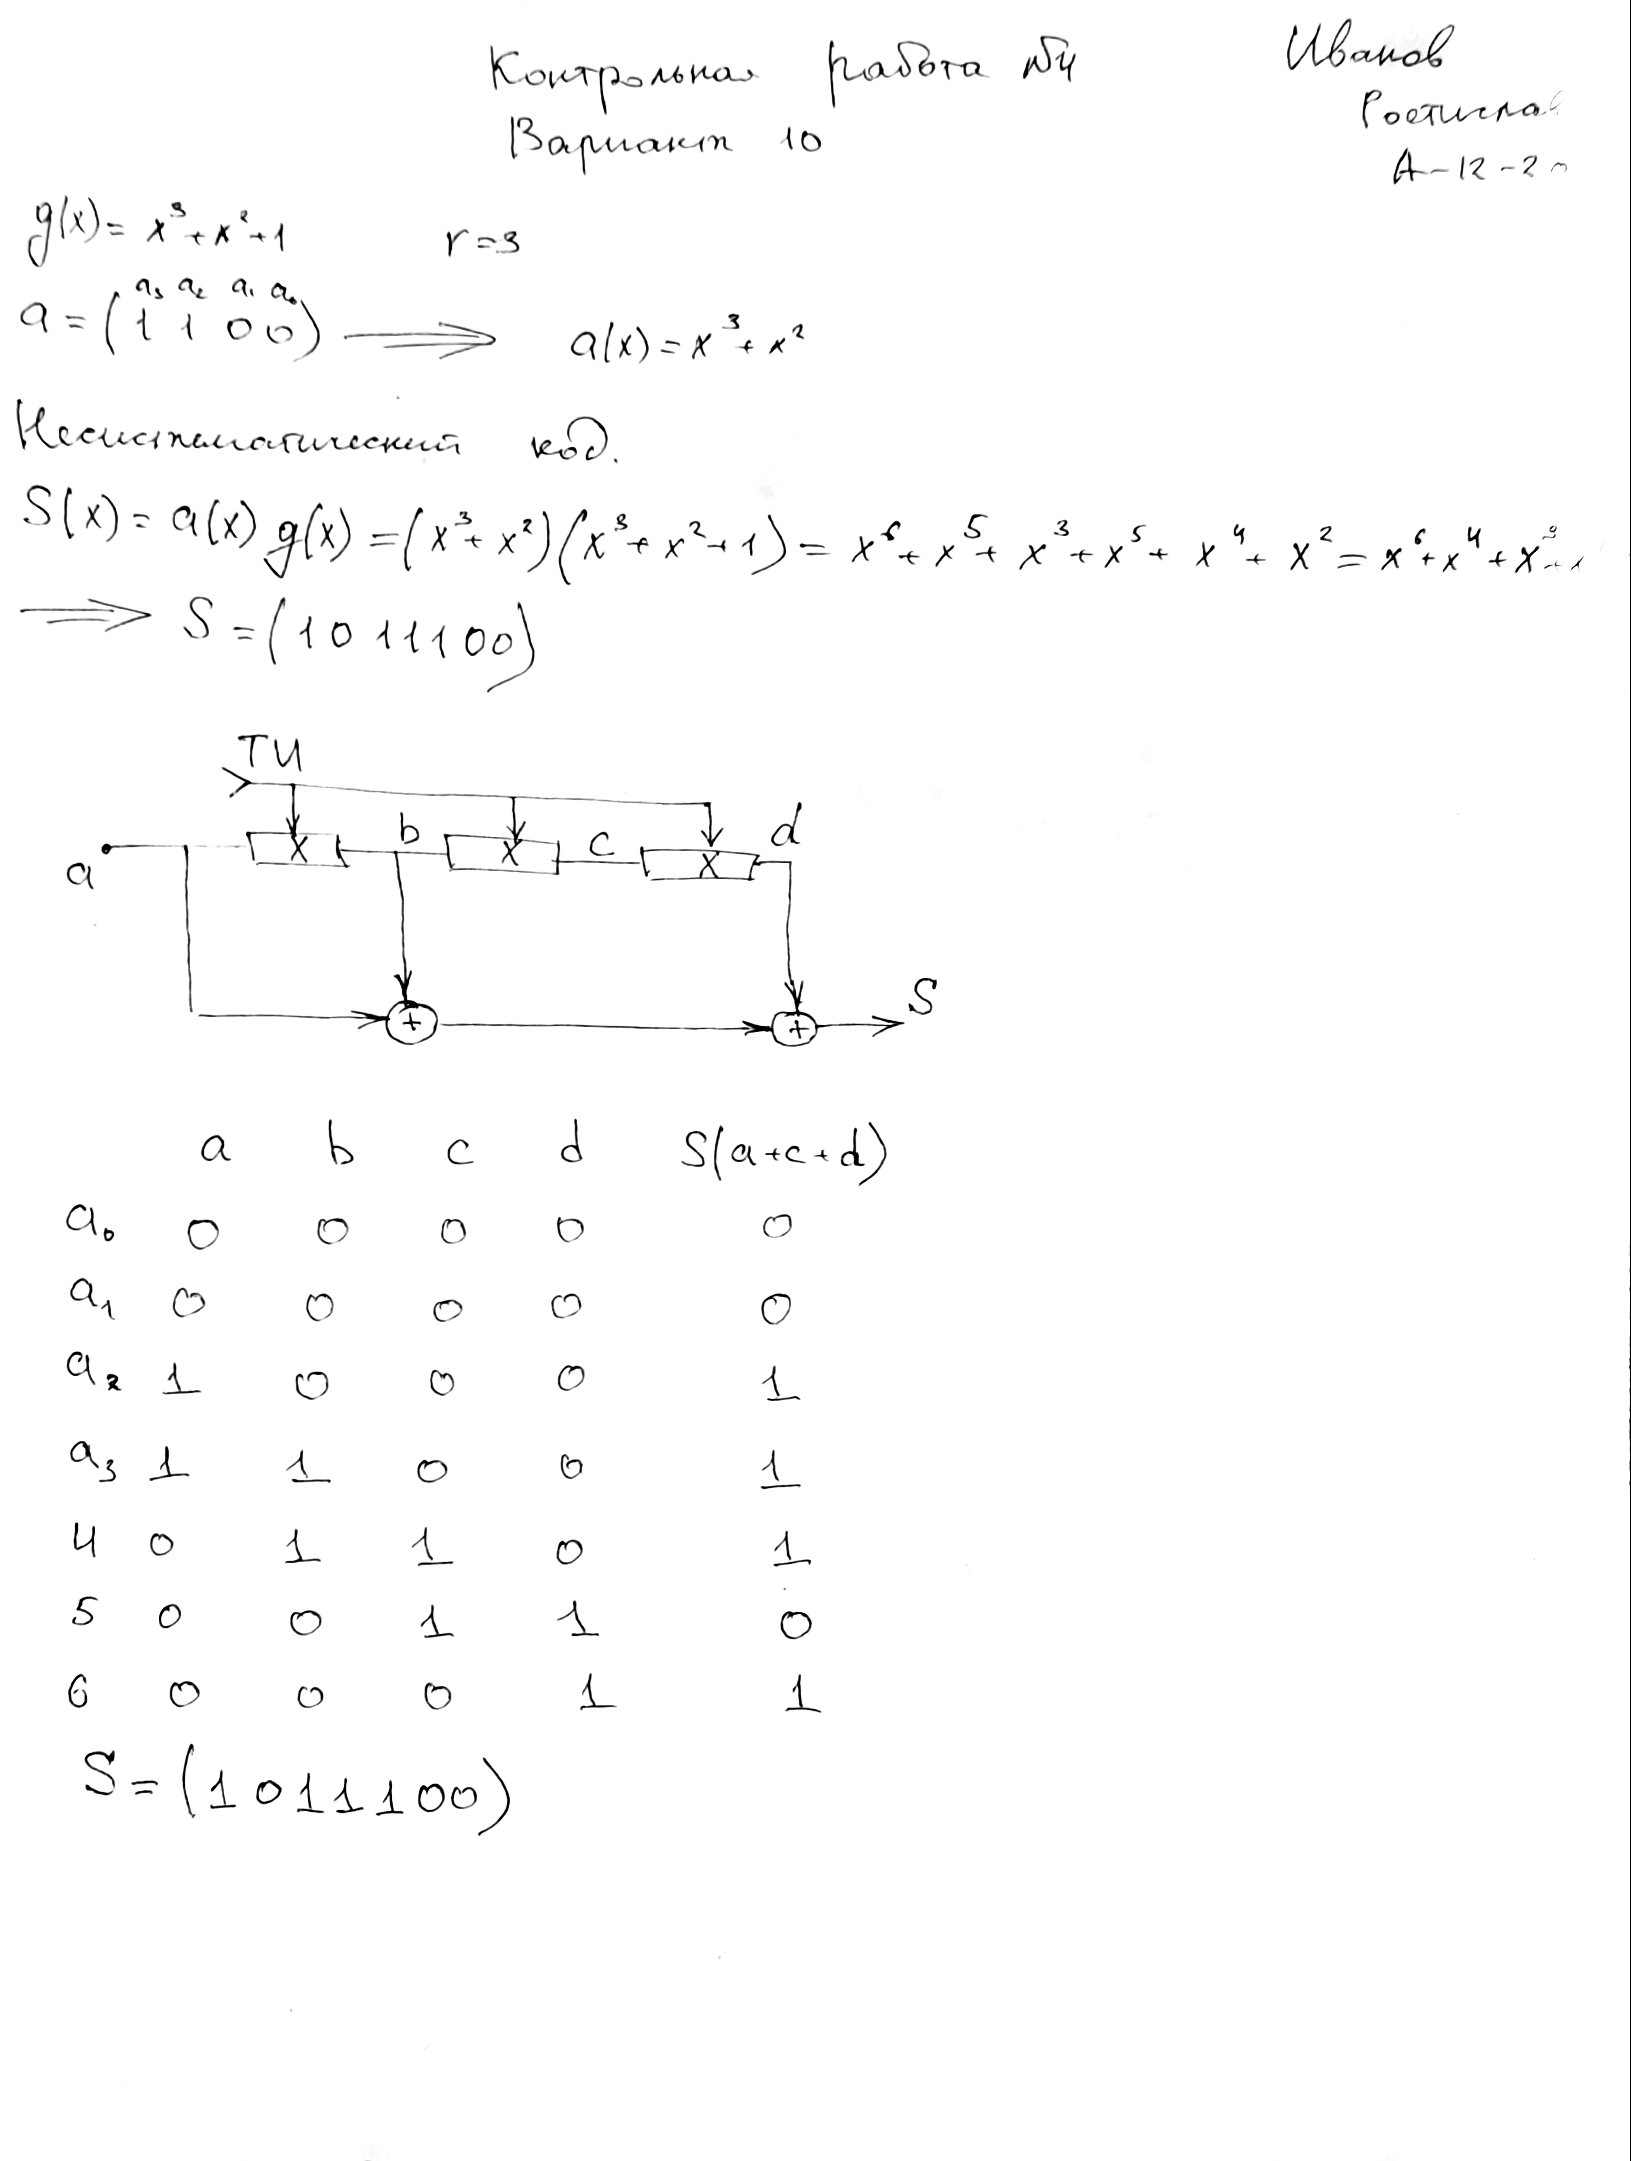 Контрольная работа №4
Вариант 10
Иванов
Ростисла
А-12-2
g(x) = x³ + x² + 1 r = 3
a₃ a₂ a₁ a₀
a = (1 1 0 0) ⟹ a(x) = x³ + x²
Несистематический код.
S(x) = a(x) g(x) = (x³ + x²)(x³ + x² + 1) = x⁶ + x⁵ + x³ + x⁵ + x⁴ + x² = x⁶ + x⁴ + x³ +
⟹ S = (1 0 1 1 1 0 0)
ТИ
a X b X c X d
+ + S
a b c d S(a+c+d)
a₀ 0 0 0 0 0
a₁ 0 0 0 0 0
a₂ 1 0 0 0 1
a₃ 1 1 0 0 1
4 0 1 1 0 1
5 0 0 1 1 0
6 0 0 0 1 1
S = (1 0 1 1 1 0 0)